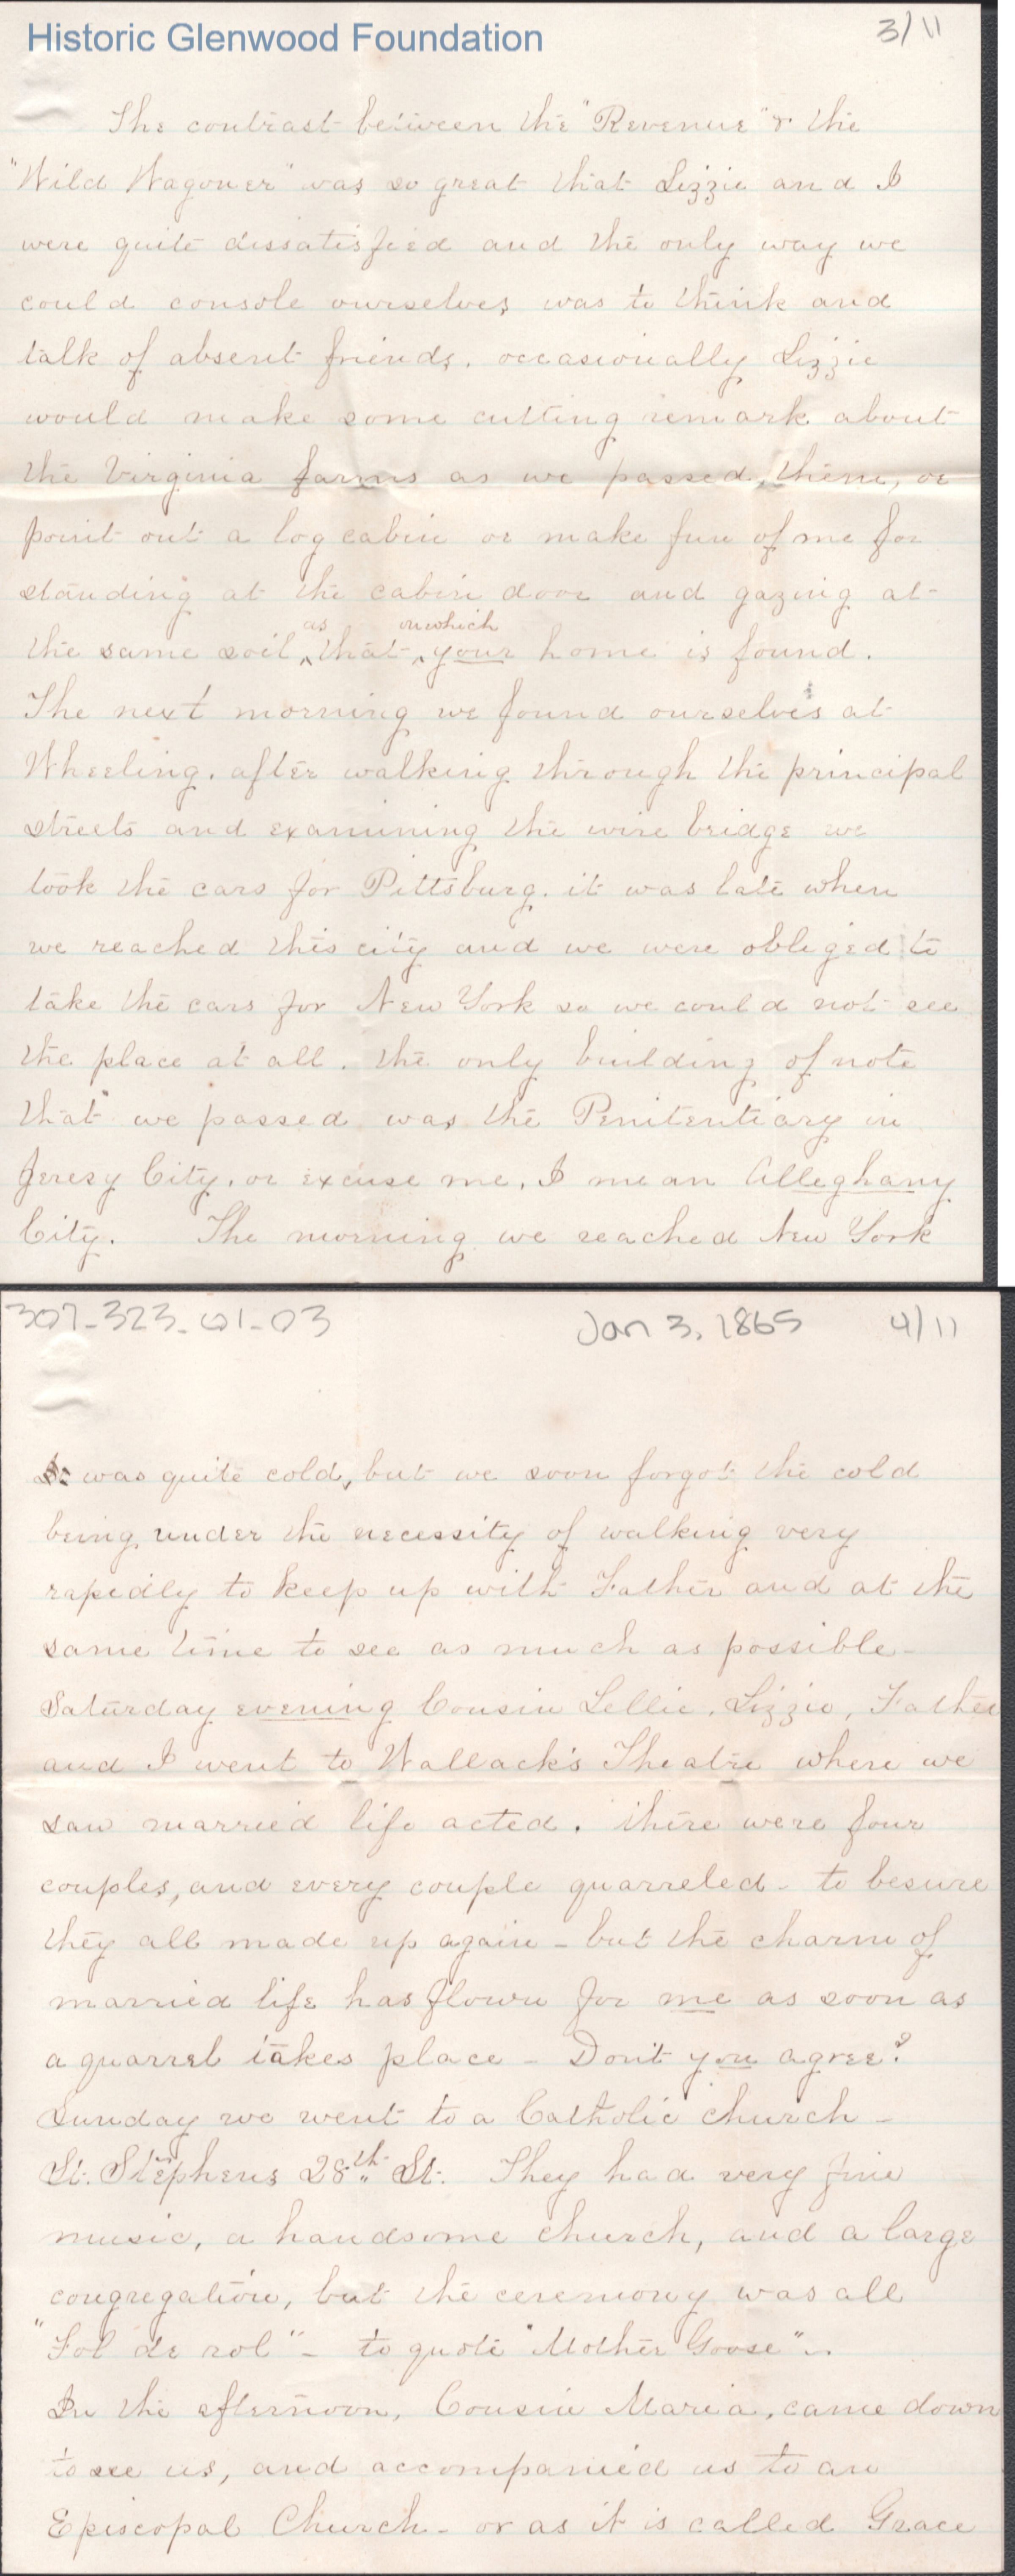 Historic Glenwood Foundation
3/11
The contrast between the "Revenue" & the
"Wild Wagoner" was so great that Lizzie and I
were quite dissatisfied and the only way we
could console ourselves was to think and
talk of absent friends. occasionally Lizzie
would make some cutting remark about
the Virginia farms as we passed, them, or
point out a log cabin or make fun of me for
standing at the cabin door and gazing at
as on which
the same soil ^ that ^ your home is found.
The next morning we found ourselves at
Wheeling. after walking through the principal
streets and examining the wire bridge we
took the cars for Pittsburg. it was late when
we reached this city and we were obliged to
take the cars for New York so we could not see
the place at all. the only building of note
that we passed was the Penitentiary in
Jeresy City. or excuse me, I mean Alleghany
City. The morning we reached New York
307-323-01-03
Jan 3, 1865
4/11
was quite cold, but we soon forgot the cold
being, under the necessity of walking very
rapidly to keep up with Father and at the
same time to see as much as possible-
Saturday evening Cousin Lellie, Lizzie, Father
and I went to Wallack's Theatre where we
saw married life acted. there were four
couples, and every couple quarreled - to besure
they all made up again - but the charm of
married life has flown for me as soon as
a quarrel takes place - Don't you agree?
Sunday we went to a Catholic church -
St. Stephens 28th St. They had very fine
music, a handsome church, and a large
congregation, but the ceremony was all
"Fol de rol" - to quote "Mother Goose" -
In the afternoon, Cousin Maria, came down
to see us, and accompanied us to an
Episcopal Church - or as it is called Grace